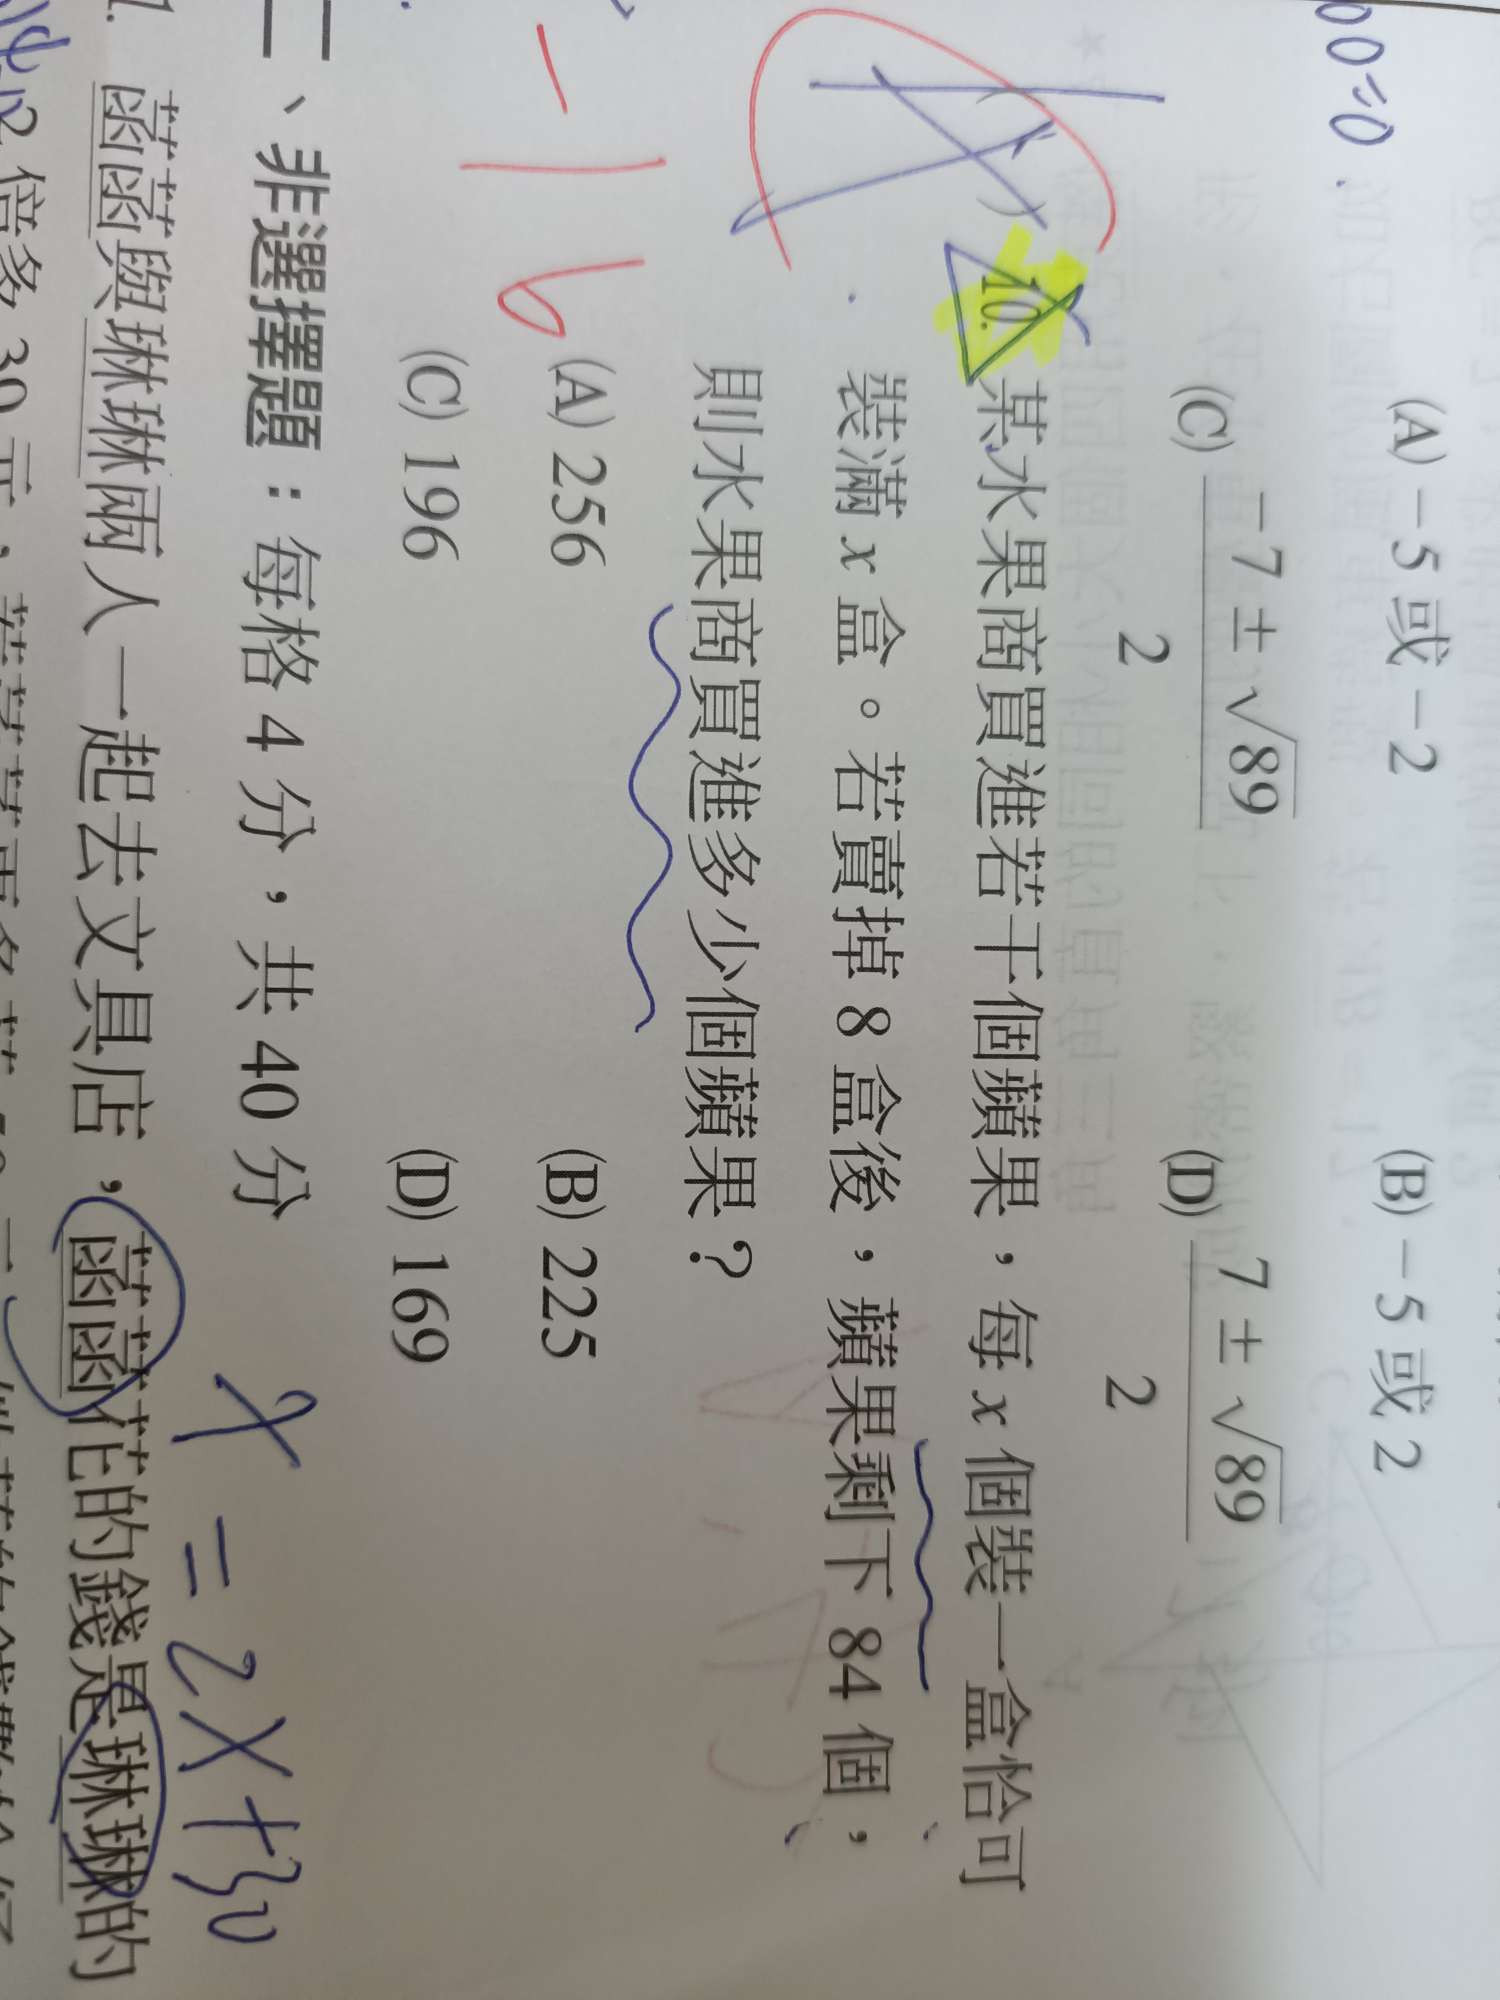 00=0
(A) -5 或 -2 (B) -5 或 2
(C) -7 ± √89 / 2 (D) 7 ± √89 / 2
( ) 10. 某水果商買進若干個蘋果，每 x 個裝一盒恰可
裝滿 x 盒。若賣掉 8 盒後，蘋果剩下 84 個，
則水果商買進多少個蘋果？
(A) 256 (B) 225
(C) 196 (D) 169
-16
二、非選擇題：每格 4 分，共 40 分
y = 2x+30
1. 菡菡與琳琳兩人一起去文具店，菡菡花的錢是琳琳的
2 倍多 30 元，